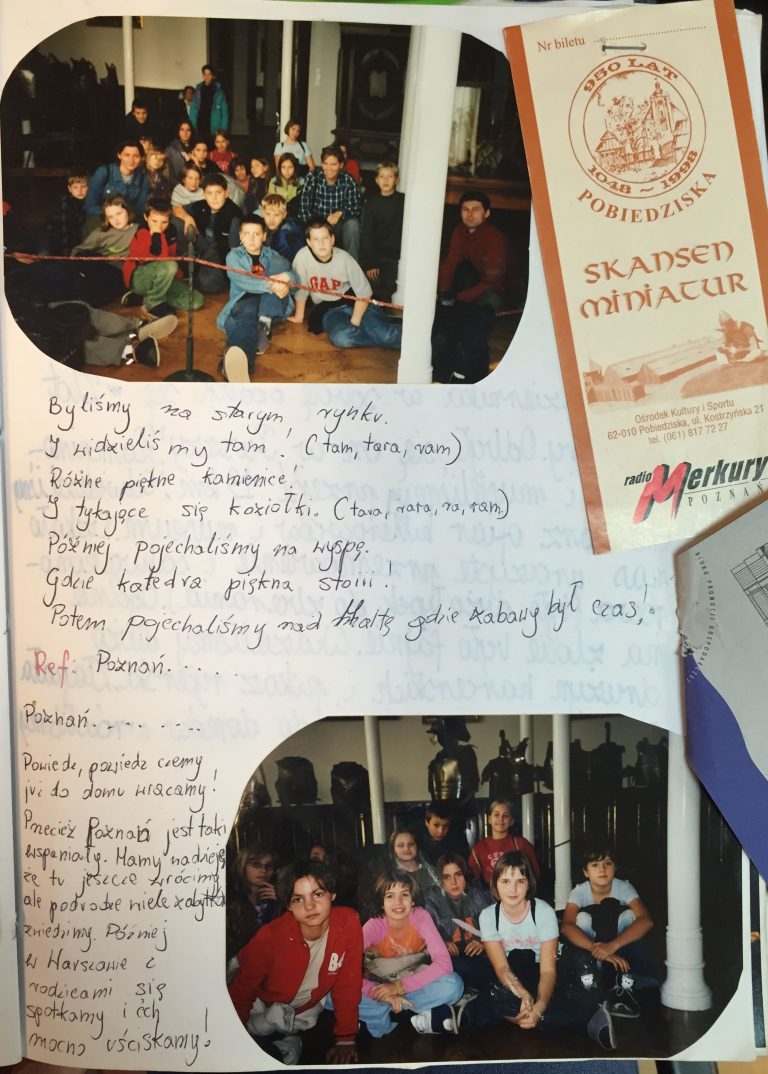 Nr biletu
950 LAT
1048 ~ 1998
POBIEDZISKA
SKANSEN
MINIATUR
Ośrodek Kultury i Sportu
62-010 Pobiedziska, ul. Kostrzyńska 21
tel. (061) 817 72 27
radio
Merkury
POZNAŃ
BIURO PROMOCJI GOSPODARCZEJ
GAP
Byliśmy na starym rynku.
I widzieliśmy tam! (tam, tara, ram)
Różne piękne kamienice!
I tykające się koziołki. (tara, rara, ra, ram)
Później pojechaliśmy na wyspę.
Gdzie katedra piękna stoiii!
Potem pojechaliśmy nad Maltę gdzie zabawy był czas!
Ref: Poznań....
Poznań.... ....
Powiedz, powiedz czemy
już do domu wracamy!
Przecież Poznań jest taki
wspaniały. Mamy nadzieję
że tu jeszcze wrócimy
ale po drodze wiele zabytków
zwiedzimy. Później
w Warszawie z
rodzicami się
spotkamy i ich
mocno uściskamy!